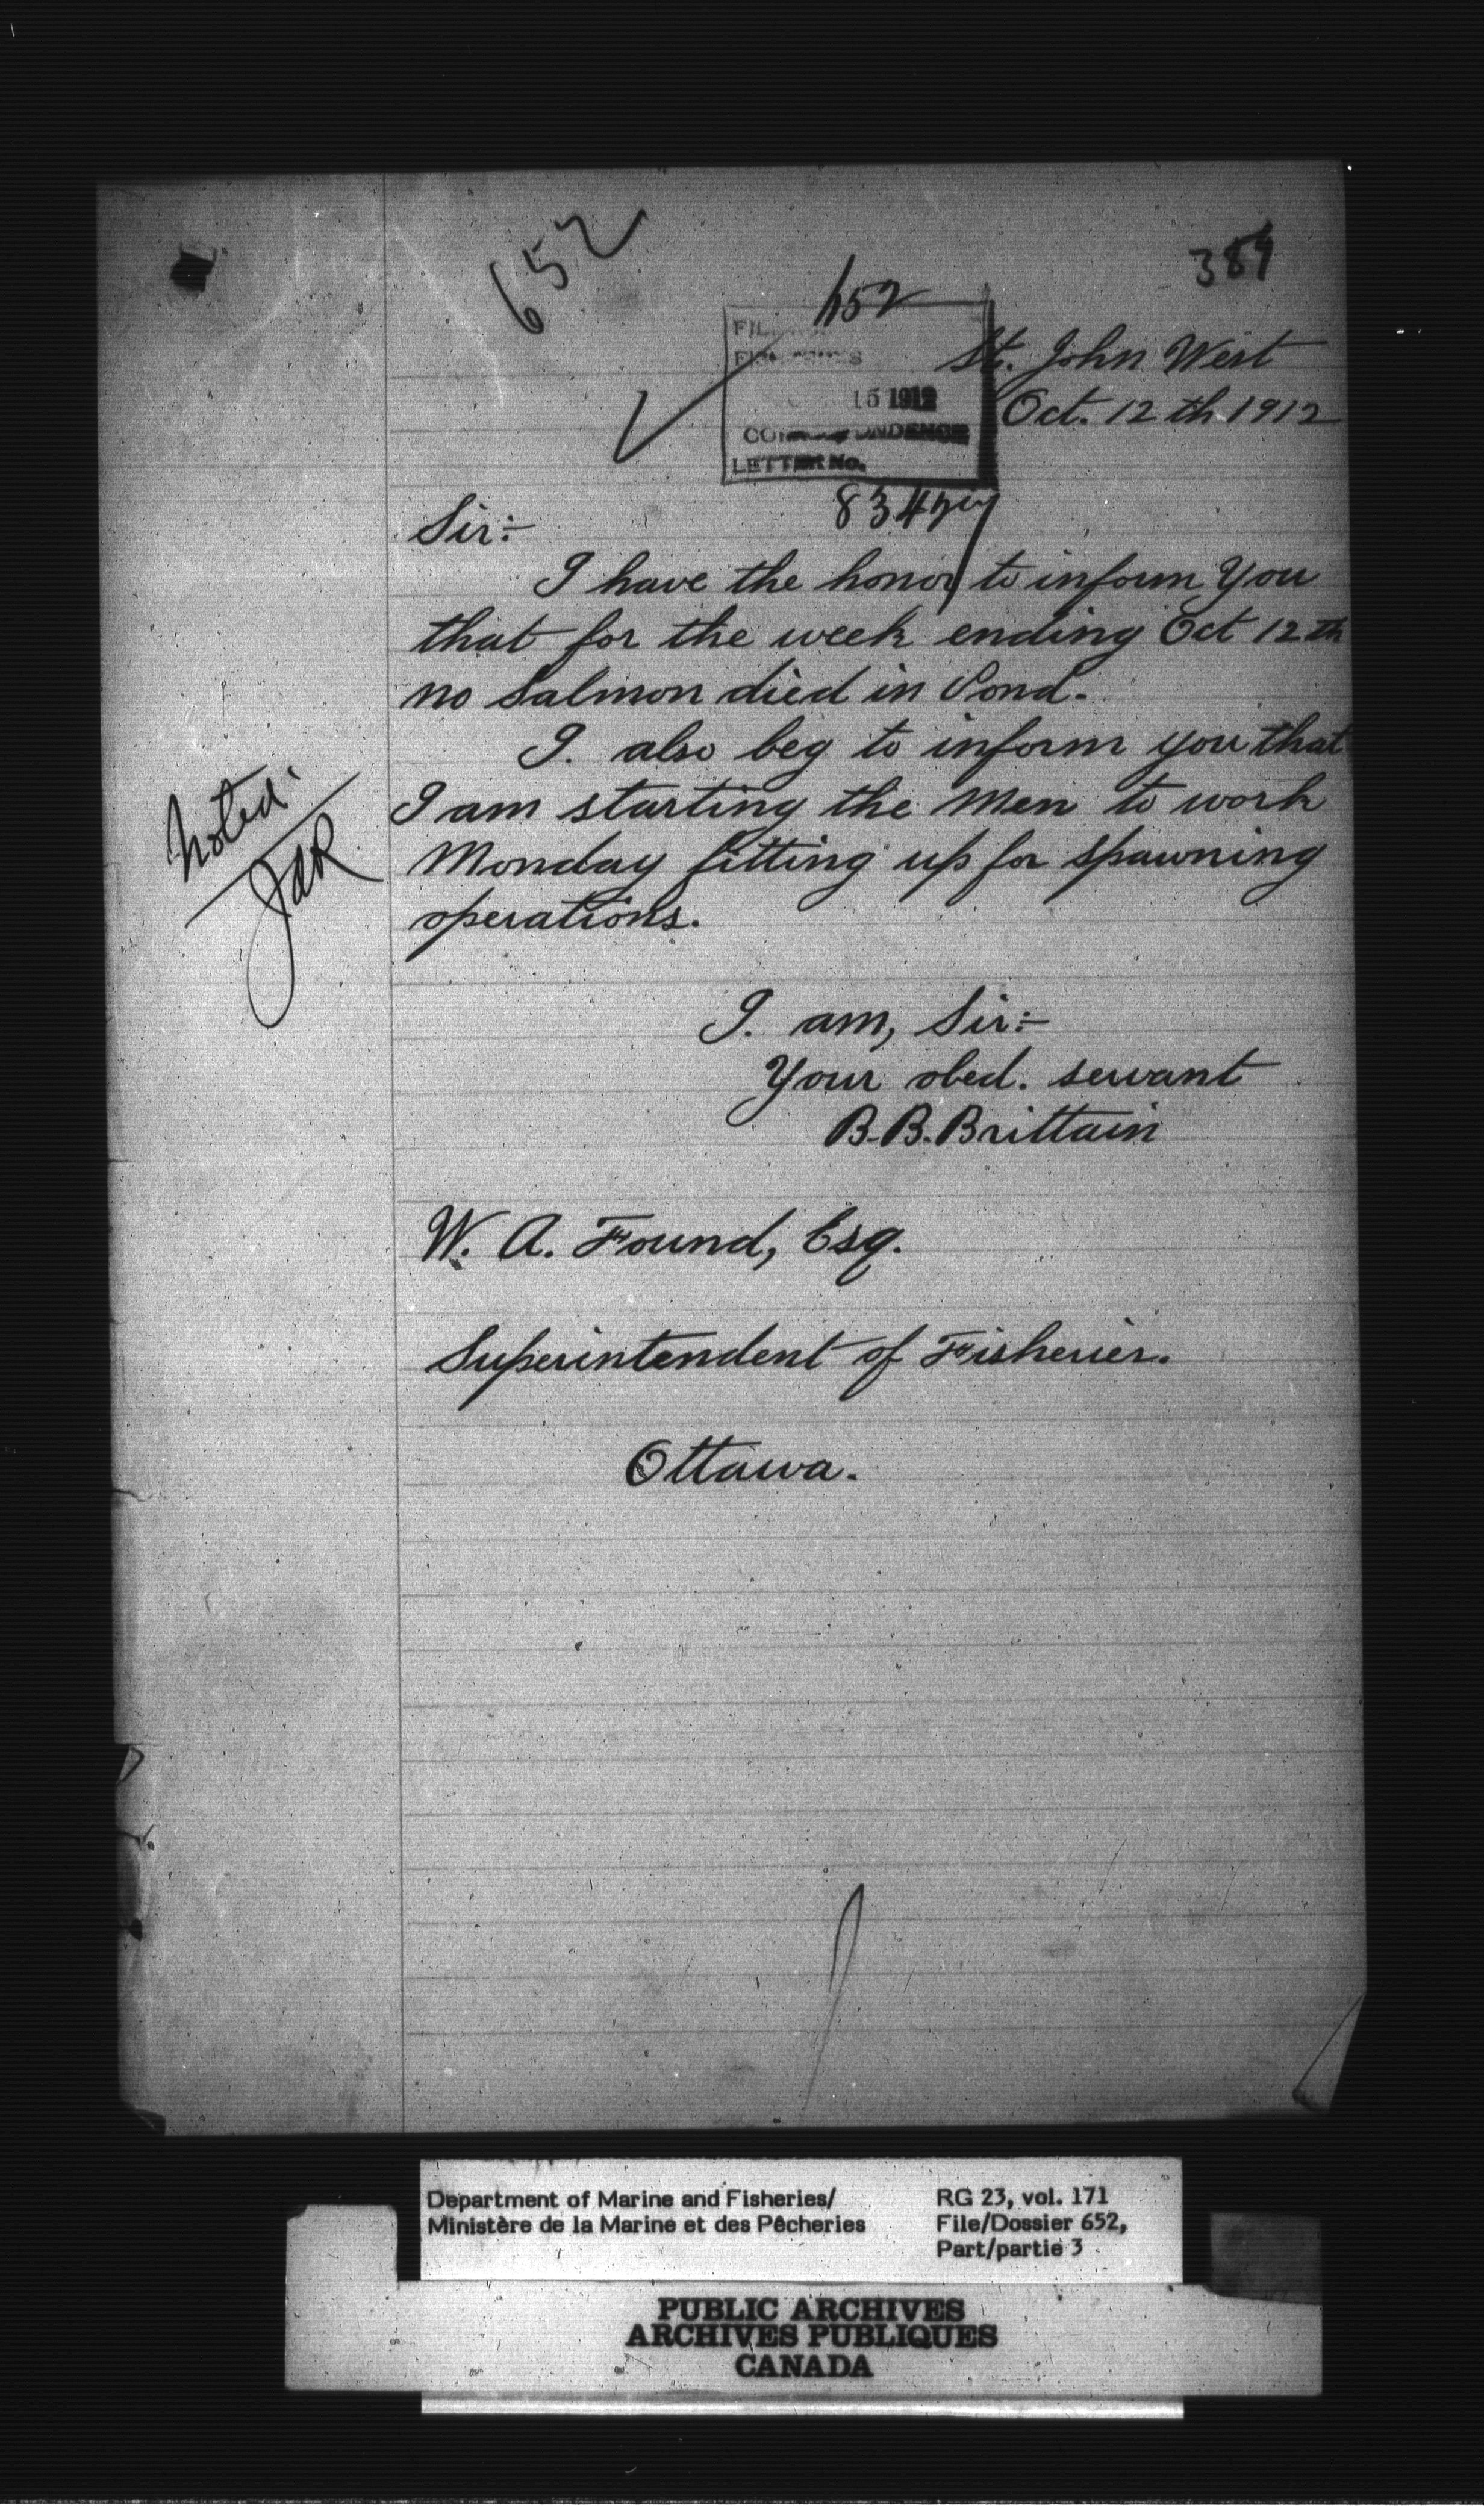 652
389
652
FISHERIES
15 1912
CORRESPONDENCE
LETTER No.
St. John West
Oct. 12 th 1912
Sir:-
I have the honor to inform You
that for the week ending Oct 12 th
no Salmon died in Pond.
I. also beg to inform you that
I am starting the Men to work
Monday fitting up for spawning
operations.
Noted.
I. am, Sir:-
Your obed. servant
B.B. Brittain
W. A. Found, Esq.
Superintendent of Fisheries.
Ottawa.
Department of Marine and Fisheries/
Ministère de la Marine et des Pêcheries
RG 23, vol. 171
File/Dossier 652,
Part/partie 3
PUBLIC ARCHIVES
ARCHIVES PUBLIQUES
CANADA